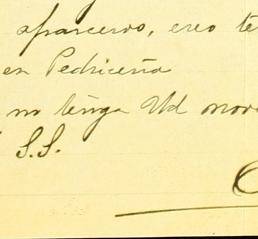 aparceros, creo te
en Pedriceña
no tenga Ud nove
S.S.